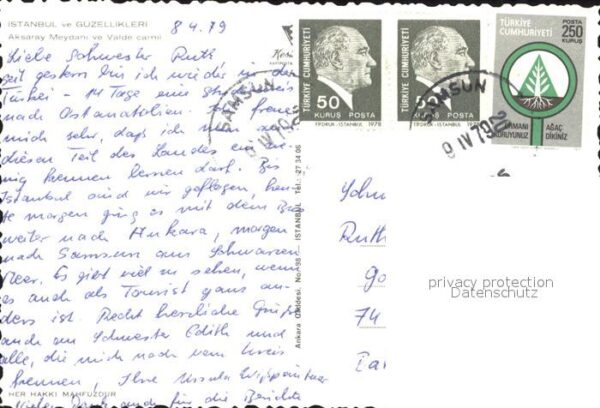 ISTANBUL ve GÜZELLIKLERI
Aksaray Meydanı ve Valde camii
8 4.79
Liebe Schwester Ruth
seit gestern bin ich wieder in der
Türkei - 14 Tage eine
nach Ostanatolien. Ich freue
mich sehr, daß ich nun auch
diesen Teil des Landes ein
wenig kennen lernen darf. Bis
Istanbul sind wir geflogen, heu-
te morgen ging es mit dem Bus
weiter nach Ankara, morgen
nach Samsun am Schwarzen
Meer. Es gibt viel zu sehen, wenn
es auch als Tourist ganz an-
ders ist. Recht herzliche Grüße
auch an Schwester Edith und
alle, die mich noch vom
kennen, Ihre Ursula
HER HAKKI MAHFUZDUR
Vielen Dank auch für die Berichte
Ankara Caddesi, No. 98 - ISTANBUL Tel.: 27 34 06
TÜRKİYE CUMHURİYETİ
50
KURUŞ POSTA
TÜRKİYE CUMHURİYETİ
50
KURUŞ POSTA
TÜRKİYE
CUMHURİYETİ
POSTA
250
KURUŞ
ORMANI
KORUYUNUZ
AĞAÇ
DİKİNİZ
SAMSUN
9 IV 79
SAMSUN
9 IV 79
Ruth
74
privacy protection
Datenschutz